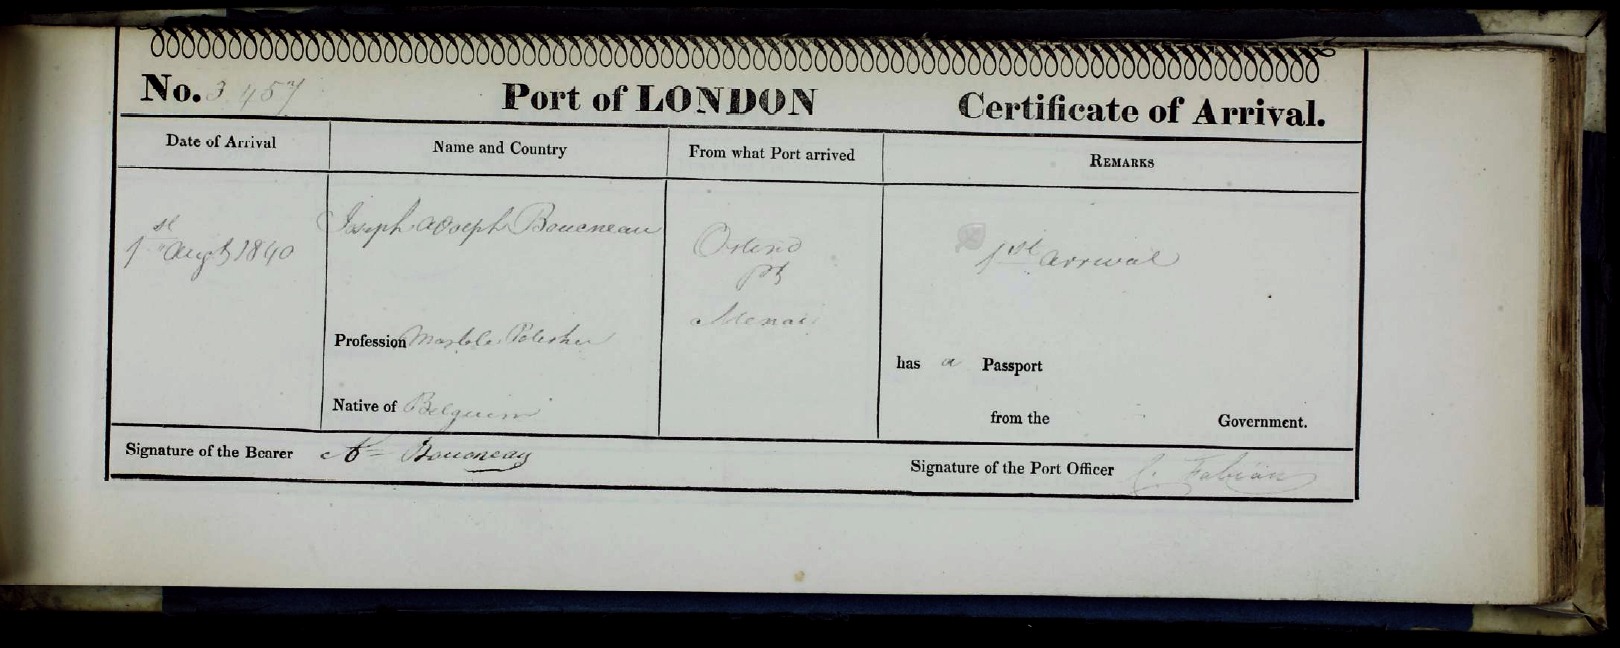 No. 3457 Port of LONDON Certificate of Arrival.
Date of Arrival Name and Country From what Port arrived REMARKS
1st Augt 1840 Joseph Adolph Boucneau Ostend 1st arrival
pr
Menai
Profession Marble Polisher
has a Passport
Native of Belguim
from the Government.
Signature of the Bearer Ae Boucneau
Signature of the Port Officer C. Fabian